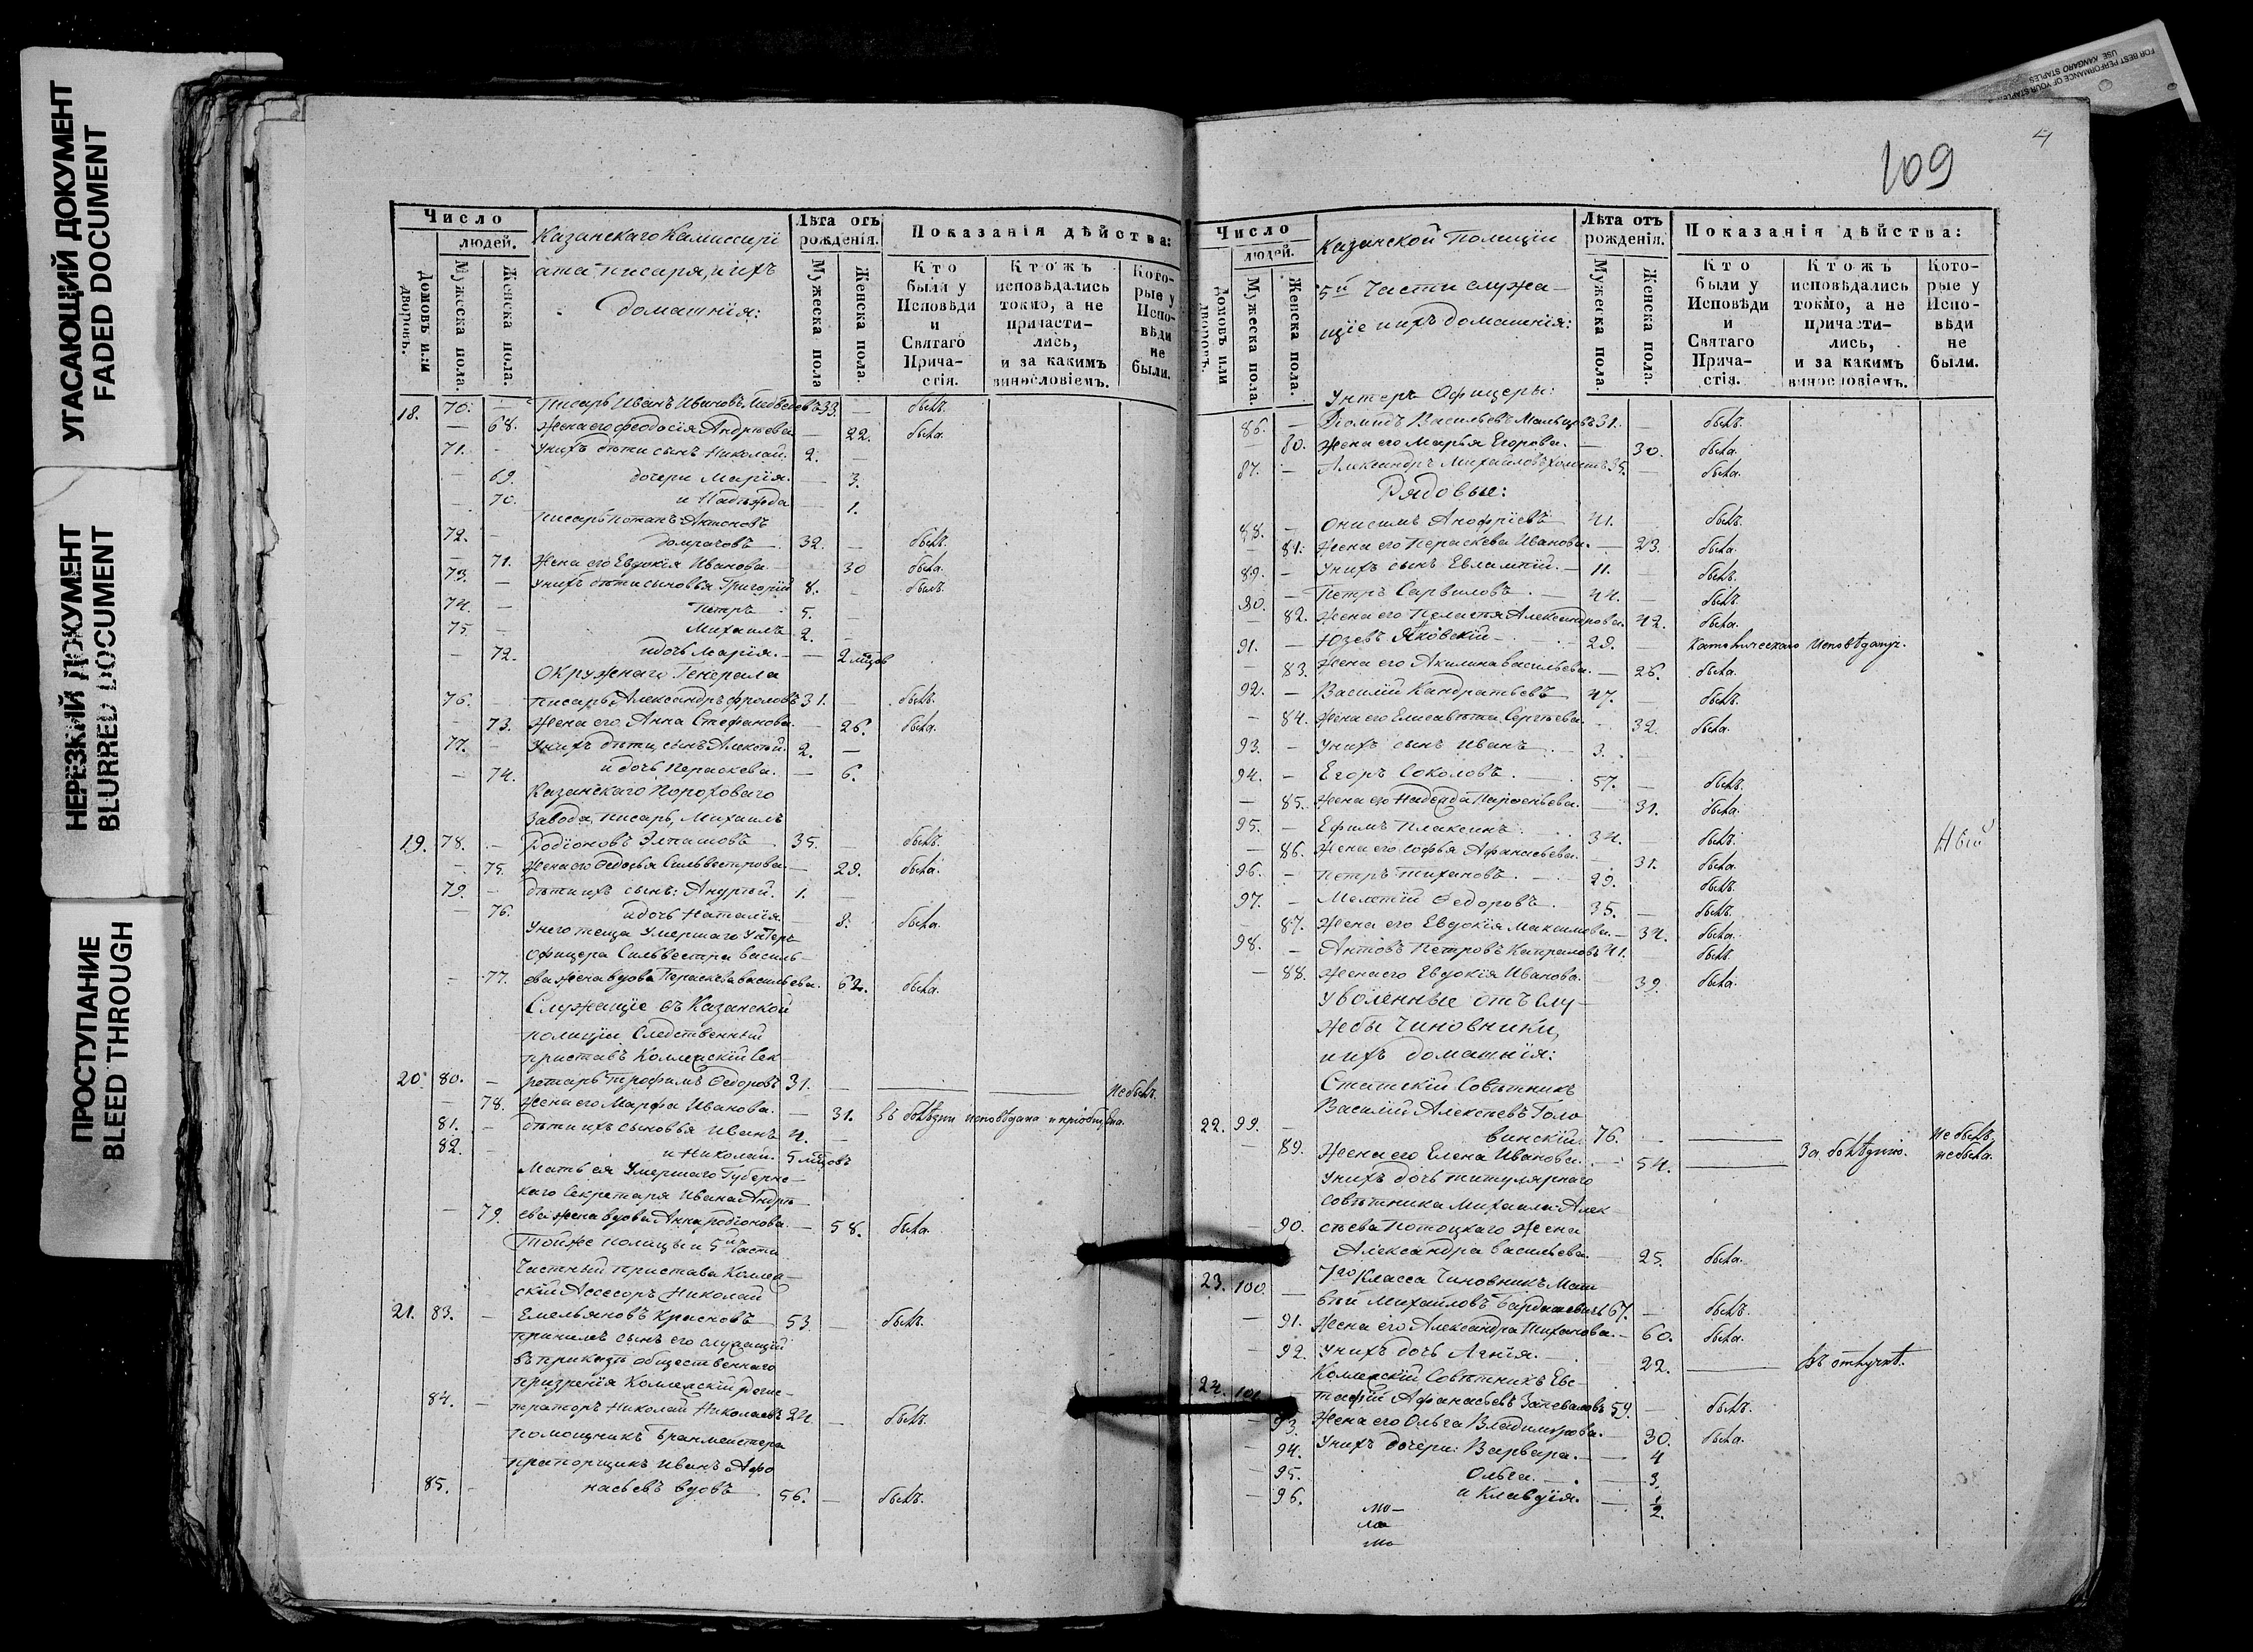 УГАСАЮЩИЙ ДОКУМЕНТ
FADED DOCUMENT
НЕРЕЗКИЙ ДОКУМЕНТ
BLURRED DOCUMENT
ПРОСТУПАНИЕ
BLEED THROUGH
Число
людей.
Домовъ или дворовъ.
Мужеска пола.
Женска пола.
Казанскаго Камиссарі
ата писаря, и ихъ
домашнія:
Лѣта отъ рожденія.
Мужеска пола
Женска пола.
Показанія дѣйства:
Кто были у Исповѣди и Святаго Прича-стія.
Ктожъ исповѣдались токмо, а не причасти-лись, и за какимъ винословіемъ.
Кото-рые у Испо-вѣди не были.
18. 70. — Писарь Иванъ Ивановъ 33. — былъ.
— 68. Жена его Феодосія Андреева — 22. была.
71. — У нихъ дѣти сынъ Николай. 2. —
— 69. дочери Марія. — 3.
— 70. и Надежда — 1.
Писарь Потапъ Антоновъ
72. — 32. — былъ.
— 71. Жена его Евдокія Иванова — 30 была.
73. — У нихъ дѣти сыновья Григорій 8. — былъ.
74. — Петръ 5. —
75. — Михаилъ 2. —
— 72. и дочь Марія. — 2 мѣсцов
Окружнаго Генерала
76. — писарь, Александръ Фроловъ 31. — былъ.
— 73. Жена его Анна Стефанова — 26. была.
77. — У нихъ дѣти, сынъ Алексѣй. 2. —
— 74. и дочь Параскева. — 6.
Казанскаго Пороховаго
Завода, писарь, Михаилъ
19. 78. — Родіоновъ 35. — былъ.
— 75. Жена его Ѳедосья Сильвестрова — 29. была.
79. — дѣти ихъ сынъ: 1. —
— 76. и дочь Наталія — 8. была.
У него теща Умершаго Унтеръ
офицера Сильвестра Василь
— 77. ева жена вдова Параскева Васильева. 62. была.
Служащіе въ Казанской
полиціи Следственный
приставъ Коллежскій Сек
20. 80. — ретарь Трофимъ Ѳедоровъ 31. — не былъ.
— 78. Жена его Марфа Иванова. — 31. въ болѣзни исповѣдана и пріобщена.
81. — дѣти ихъ сыновья Иванъ 4. —
82. — и Николай. 5 мѣсцовъ
Мать ея Умершаго Губернс-
каго Секретаря Ивана Андре
— 79. ева жена вдова Анна Родіонова — 58. была.
Тойже полиціи 5й части
Частный пристава Коллеж-
скій Ассесоръ Николай
21. 83. — Емельяновъ Красновъ 53. — былъ.
при немъ сынъ его служащій
въ приказѣ общественнаго
призренія Коллежскій регис-
84. — траторъ Николай Николаевъ 24. — былъ.
помощникъ Брандмейстера
прапорщикъ Иванъ Афо
85. — насьевъ вдовъ 56. — былъ.
109
Число
людей.
Домовъ или дворовъ.
Мужеска пола.
Женска пола.
Казанской Полиціи
5й Части служа-
щіе и ихъ домашнія:
Лѣта отъ рожденія.
Мужеска пола.
Женска пола.
Показанія дѣйства:
Кто были у Исповѣди и Святаго Прича-стія.
Кто жъ исповѣдались токмо, а не причасти-лись, и за какимъ винословіемъ.
Кото-рые у Испо-вѣди не были.
Унтеръ Офицеры:
86. — Васильевъ Мальцевъ 31. — былъ.
80. Жена его Марья Егорова. — 30. была.
87. — Александръ Михайловъ 35. — была.
Рядовые:
88. — Онисимъ Анофріевъ 41. былъ.
— 81. Жена его Параскева Иванова. — 23. была.
89. — У нихъ сынъ Евлампій. 11. — былъ.
90. — Петръ 44. — былъ.
— 82. Жена его Пелагія Александрова. 42. была.
91. — Юзевъ Яковскій 29. — Католическаго исповѣданія.
— 83. Жена его Акилина Васильева. — 26. была.
92. — Василій Кандратьевъ 47. — былъ.
— 84. Жена его Елисавета Сергѣева. — 32. была.
93. — У нихъ сынъ Иванъ 3. —
94. — Егоръ Соколовъ. 57. — былъ.
— 85. Жена его Надежда Парфеньева. — 31. была.
95. — Ефимъ Плаксинъ. 34. — былъ.
— 86. Жена его Софья Афанасьева. — 31. была.
96. — Петръ Тихановъ. 29. былъ.
97. — Мелетій Ѳедоровъ. 35. — былъ.
— 87. Жена его Евдокія Максимова. — 34. была.
98. — Антонъ Петровъ 41. — былъ.
— 88. Жена его Евдокія Иванова. — 39. была.
Уволенные отъ слу-
жебы Чиновники,
и ихъ домашнія:
Статскій Совѣтникъ
Василій Алексѣевъ Голо
22. 99. — винскій. 76. — не былъ.
89. Жена его Елена Иванова. — 54. За болѣзнію. не была.
У нихъ дочь титулярнаго
совѣтника Михаила Алек
— 90. сѣева Потоцкаго жена
Александра Васильева. — 25. была.
7го Класса Чиновникъ Мат
23. 100. — вѣй Михайловъ Бардашевичъ 67. — былъ.
— 91. Жена его Александра Тиханова. — 60. была.
— 92. У нихъ дочь Агнія. — 22. въ отлучкѣ.
Коллежскій Совѣтникъ Евс-
24. 101. — тафій Афанасьевъ Запеваловъ 59. — былъ.
93. Жена его Ольга Владимірова. — 30. была.
— 94. У нихъ дочери: Варвара. — 4
— 95. Ольга. — 3.
— 96. и Клавдія. — 1/2.